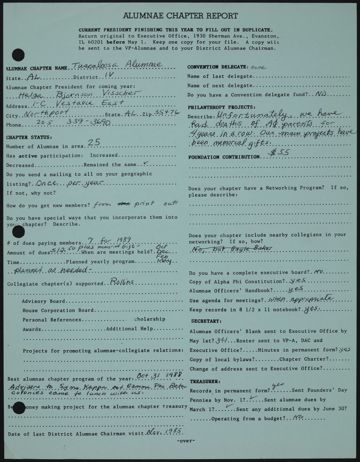 ALUMNAE CHAPTER REPORT
CURRENT PRESIDENT FINISHING THIS YEAR TO FILL OUT IN DUPLICATE.
Return original to Executive Office, 1930 Sherman Ave., Evanston,
IL 60201 before May 1. Keep one copy for your file. A copy will
be sent to the VP-Alumnae and to your District Alumnae Chairman.
ALUMNAE CHAPTER NAME. Tuscaloosa Alumnae
State. AL District IV
Alumnae Chapter President for coming year:
Helga Bjornson Visscher
Address. 1-C Vestavia East
City. Northport State. AL. Zip. 35476
Phone. 205 339-3690
CHAPTER STATUS:
Number of Alumnae in area. 25
Has active participation: Increased
Decreased Remained the same ✓
Do you send a mailing to all on your geographic
listing? Once per year
If not, why not?
How do you get new members? from print out
Do you have special ways that you incorporate them into
your chapter? Describe.
# of dues paying members. 7 for 1989
Amount of dues? $12 When are meetings held? Oct
Dec
Feb
May
Time Planned yearly program.
planned as needed
Collegiate chapter(s) supported
Advisory Board
House Corporation Board
Personal References Scholarship
Awards Additional Help
Projects for promoting alumnae-collegiate relations:
Best alumnae chapter program of the year. Oct 31 1988
Advisors to Sigma Kappa and
colonies came to lunch with us.
Best money making project for the alumnae chapter treasury
Date of last District Alumnae Chairman visit. Nov. 1985
CONVENTION DELEGATE: none
Name of last delegate
Name of next delegate
Do you have a Convention delegate fund? No
PHILANTHROPY PROJECTS:
Describe: Unfortunately, we have
had deaths of AΦ parents for
4 years in a row. Our main projects have
been memorial gifts.
FOUNDATION CONTRIBUTION. $35
Does your chapter have a Networking Program? If so,
please describe:
Does your chapter include nearby collegians in your
networking? If so, how?
No, but Gayle Baker
Do you have a complete executive board? no
Copy of Alpha Phi Constitution? yes
Alumnae Officers' Handbook? yes
Use agenda for meetings? when appropriate
Keep records in 8 1/2 x 11 notebook? yes
SECRETARY:
Alumnae Officers' Blank sent to Executive Office by
May 1st? yes Roster sent to VP-A, DAC and
Executive Office? Minutes in permanent form? yes
Copy of local bylaws? Chapter Charter?
Change of address sent to Executive Office?
TREASURER:
Records in permanent form? yes Sent Founders' Day
Pennies by Nov. 1? ✓ Sent alumnae dues by
March 1? ✓ Sent any additional dues by June 30?
Operating from a budget? No
-OVER-